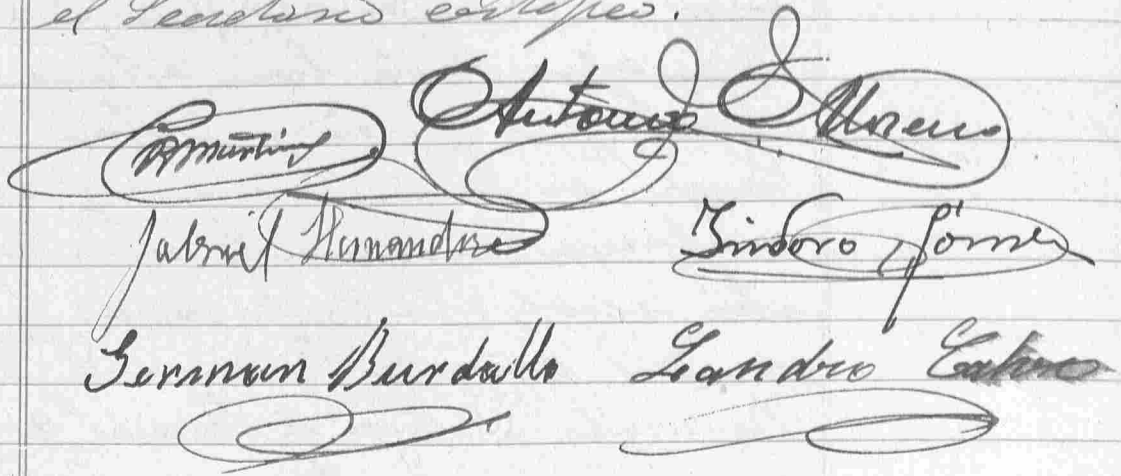 el Secretario certifico.
Antonio Moreno
Martinez
Gabriel Hernandez Isidoro Gómez
German Burdallo Leandro Calvo